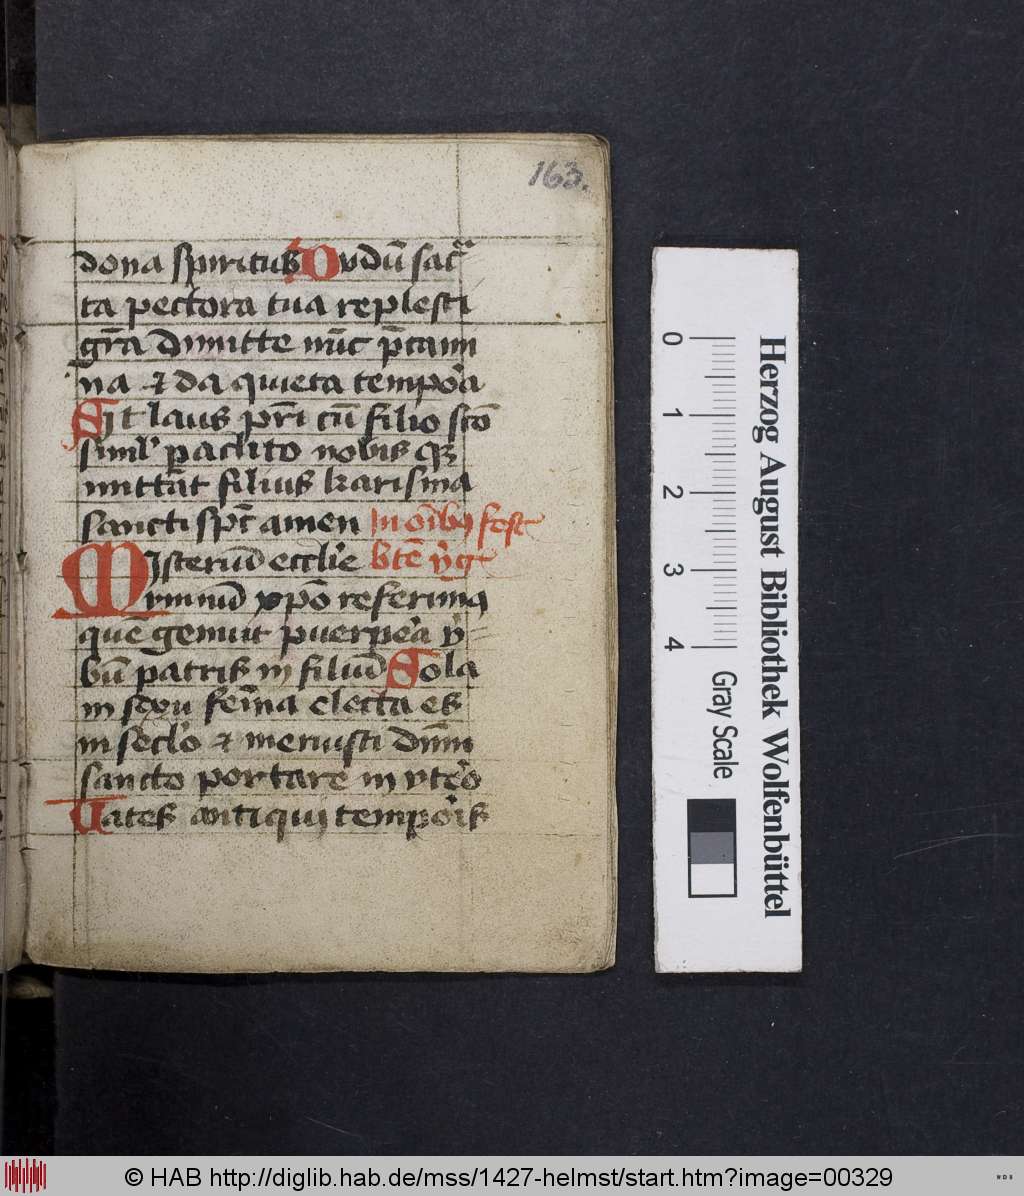 163.
dona spiritus Dudū sac̄ͣ
ta pectora tua replesti
gr̄a dimitte nūc p̄cami
na ⁊ da quieta tempor̉a
Sit laus pr̄i cū filio scō
siml̉ paclito nobis qꝫ
mittat filius karisma
sancti sp̄c amen In oībꝯ fest̉
Misteriū eccl̉ie btē v̉g̉
ymnū xp̄o referimꝯ
quē genuit puerper̉a v̉
bū patris in filiū Sola
in sexu fem̄a electa es
in secl̉o ⁊ meruisti dn̄m
sancto portare in vter̉o
Uates antiqui tempor̉is
0 1 2 3 4
Gray Scale
Herzog August Bibliothek Wolfenbüttel
© HAB http://diglib.hab.de/mss/1427-helmst/start.htm?image=00329